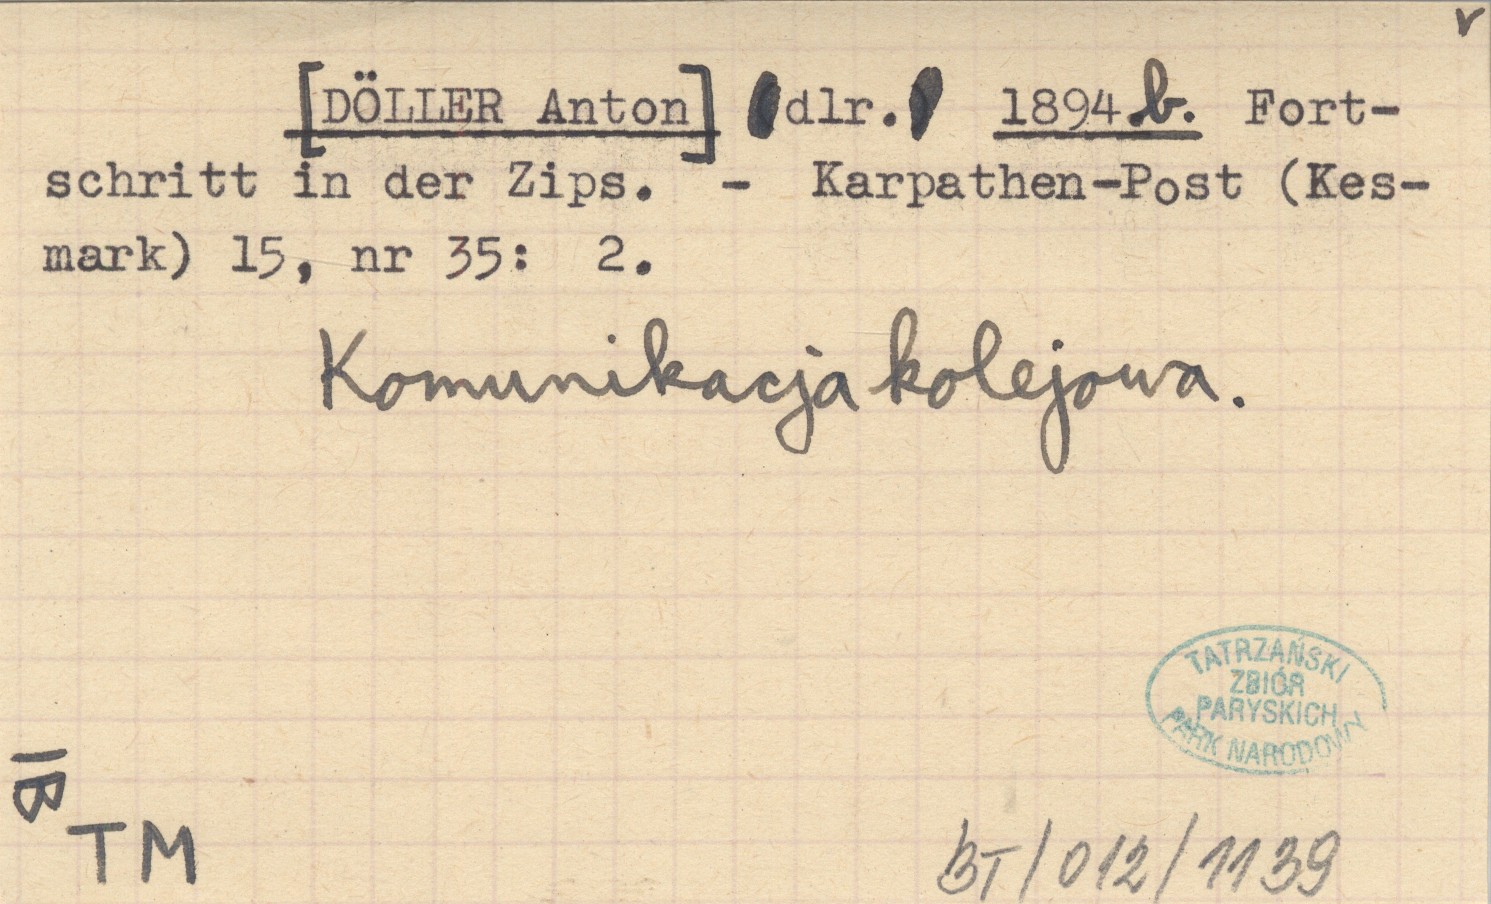 v
[DÖLLER Anton] dlr. 1894 b. Fort-
schritt in der Zips. - Karpathen-Post (Kes-
mark) 15, nr 35: 2.
Komunikacja kolejowa.
TATRZAŃSKI
ZBIÓR
PARYSKICH
PARK NARODOWY
IB
TM
BT/012/1139